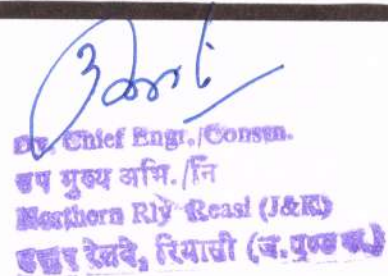 Dy. Chief Engr./Constn.
उप मुख्य अभि./नि
Northern Rly Reasi (J&K)
उत्तर रेलवे, रियासी (ज.एण्ड क.)